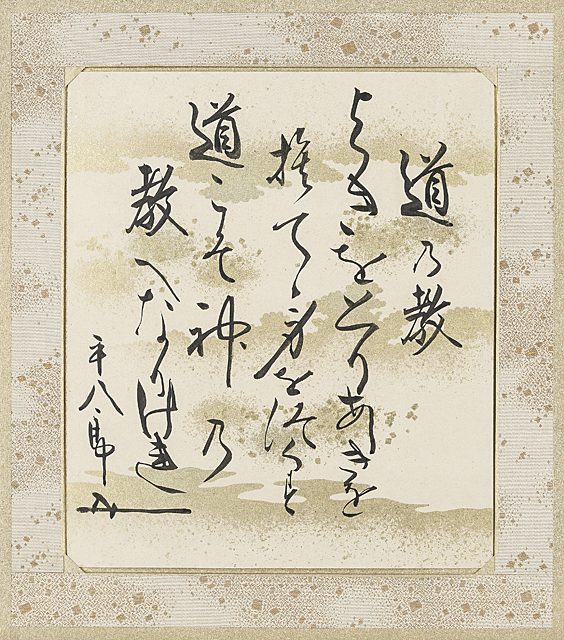 道乃教
よきをとりあしきを
捨てゝ身を
道こそ神乃
教へなりけれ
平八郎